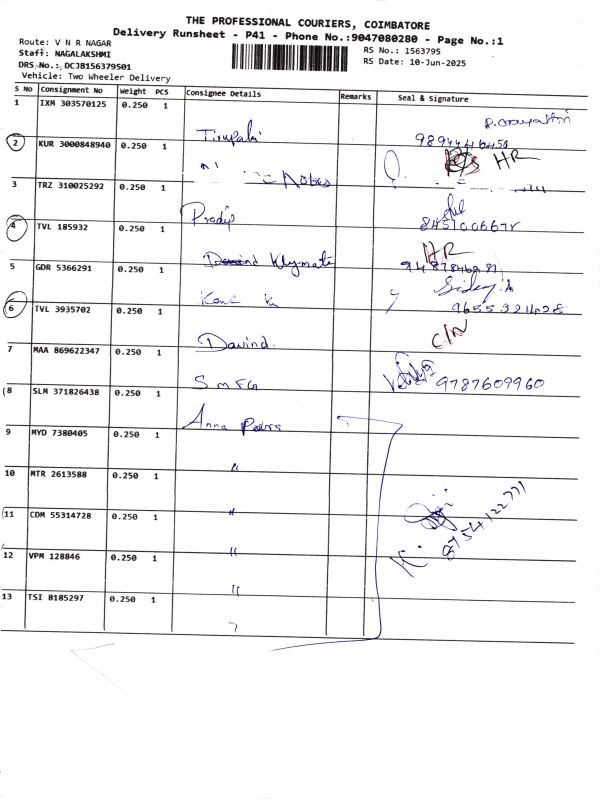 THE PROFESSIONAL COURIERS, COIMBATORE
Delivery Runsheet - P41 - Phone No.:9047080280 - Page No.:1
Route: V N R NAGAR
Staff: NAGALAKSHMI
DRS No.: DCJB156379501
Vehicle: Two Wheeler Delivery
RS No.: 1563795
RS Date: 10-Jun-2025
S No Consignment No Weight PCS Consignee Details Remarks Seal & Signature
1 IXM 303570125 0.250 1 Tirupathi
2 KUR 3000848940 0.250 1 HR
3 TRZ 310025292 0.250 1 Pradip
4 TVL 185932 0.250 1 HR
5 GDR 5366291 0.250 1
9655321428
6 TVL 3935702 0.250 1 Davind.
7 MAA 869622347 0.250 1 SMFG 9787609960
8 SLM 371826438 0.250 1 Anna
9 MYD 7380405 0.250 1 "
10 MTR 2613588 0.250 1 "
11 CDM 55314728 0.250 1 "
8754122771
12 VPM 128846 0.250 1 "
13 TSI 8185297 0.250 1